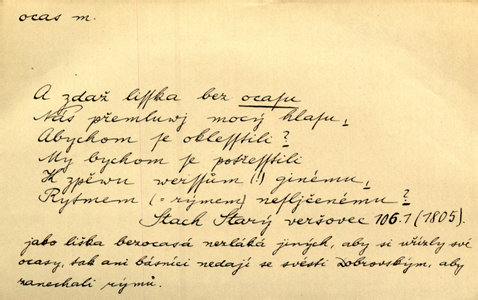 ocas m.
A zdaž lisska bez ocasu
Nás přemluwj mocý hlasu,
Abychom je oklesstili?
My bychom je potřesstili
K zpěwu werssům (!) ginému,
Rytmem (= rýmem) nesljčenému?
Stach Starý veršovec 106.1 (1805).
jako liška bezocasá nerláká jiných, aby si uřízly své
ocasy, tak ani básníci nedají se svésti Dobrovským, aby
zanechali rýmů.